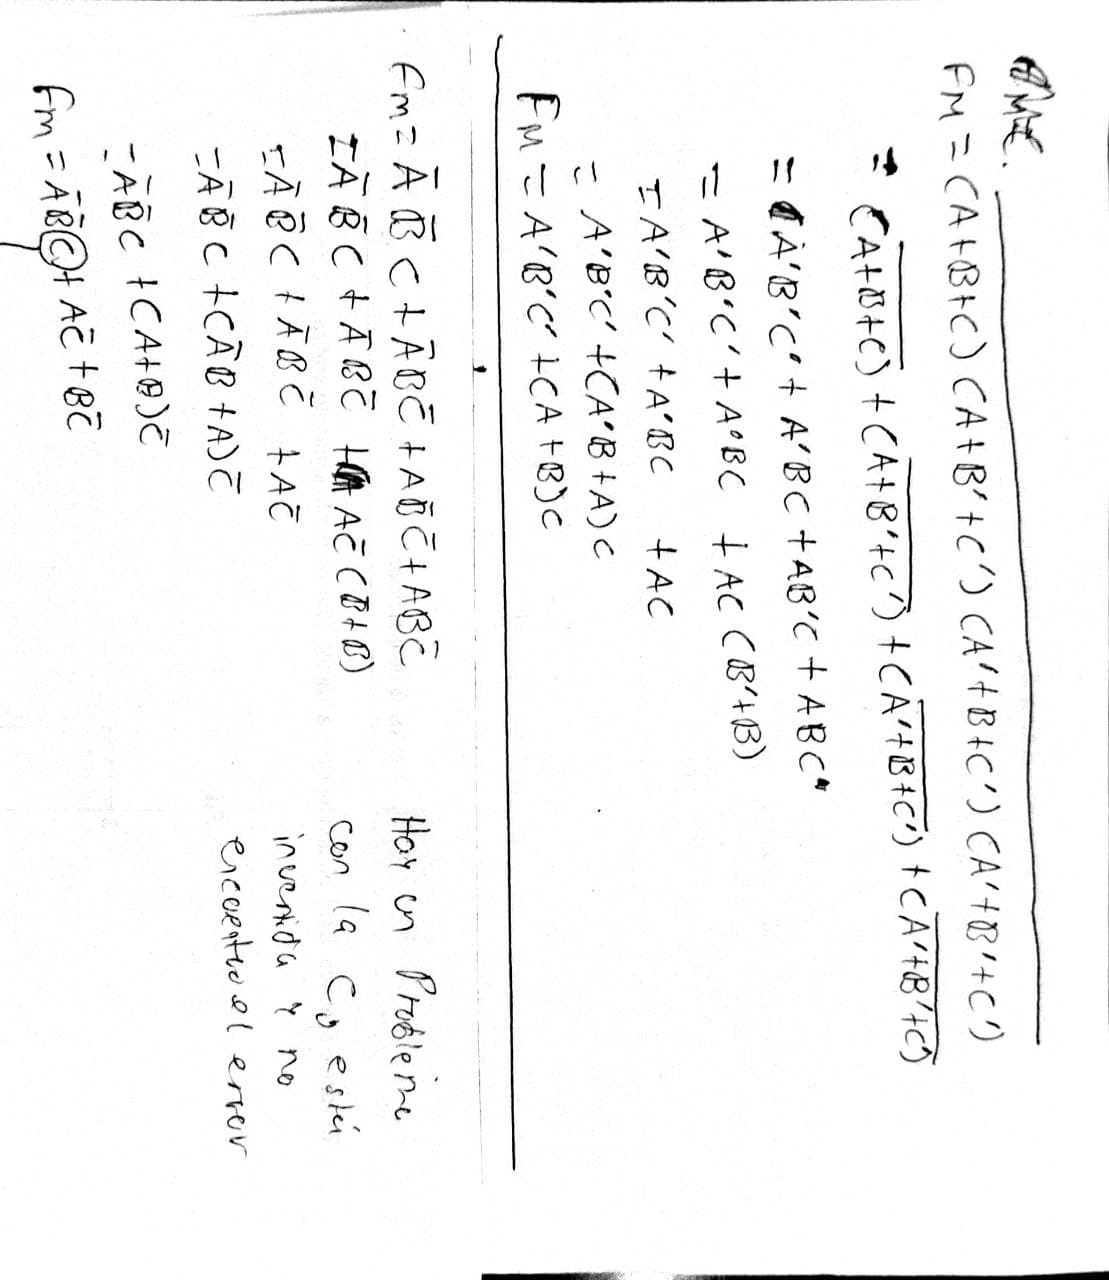 FM = (A+B+C) (A+B'+C') (A'+B+C') (A'+B'+C')
= (A+B+C) + (A+B'+C') + (A'+B+C') + (A'+B'+C)
= A'B'C' + A'BC + AB'C + ABC
= A'B'C' + A'BC + AC (B'+B)
= A'B'C' + A'BC + AC
= A'B'C' + (A'B+A)C
FM = A'B'C' + (A+B)C
Fm = A̅ B̅ C + A̅BC̅ + AB̅C̅ + ABC̅
= A̅ B̅ C + A̅ B C̅ + AC̅ (B̅+B)
= A̅ B̅ C + A̅ B C̅ + AC̅
= A̅ B̅ C + (A̅B + A)C̅
= A̅B̅C + (A+B)C̅
Fm = A̅B̅C + AC̅ + BC̅
Hay un Problema
con la C, está
invertida y no
encuentro el error